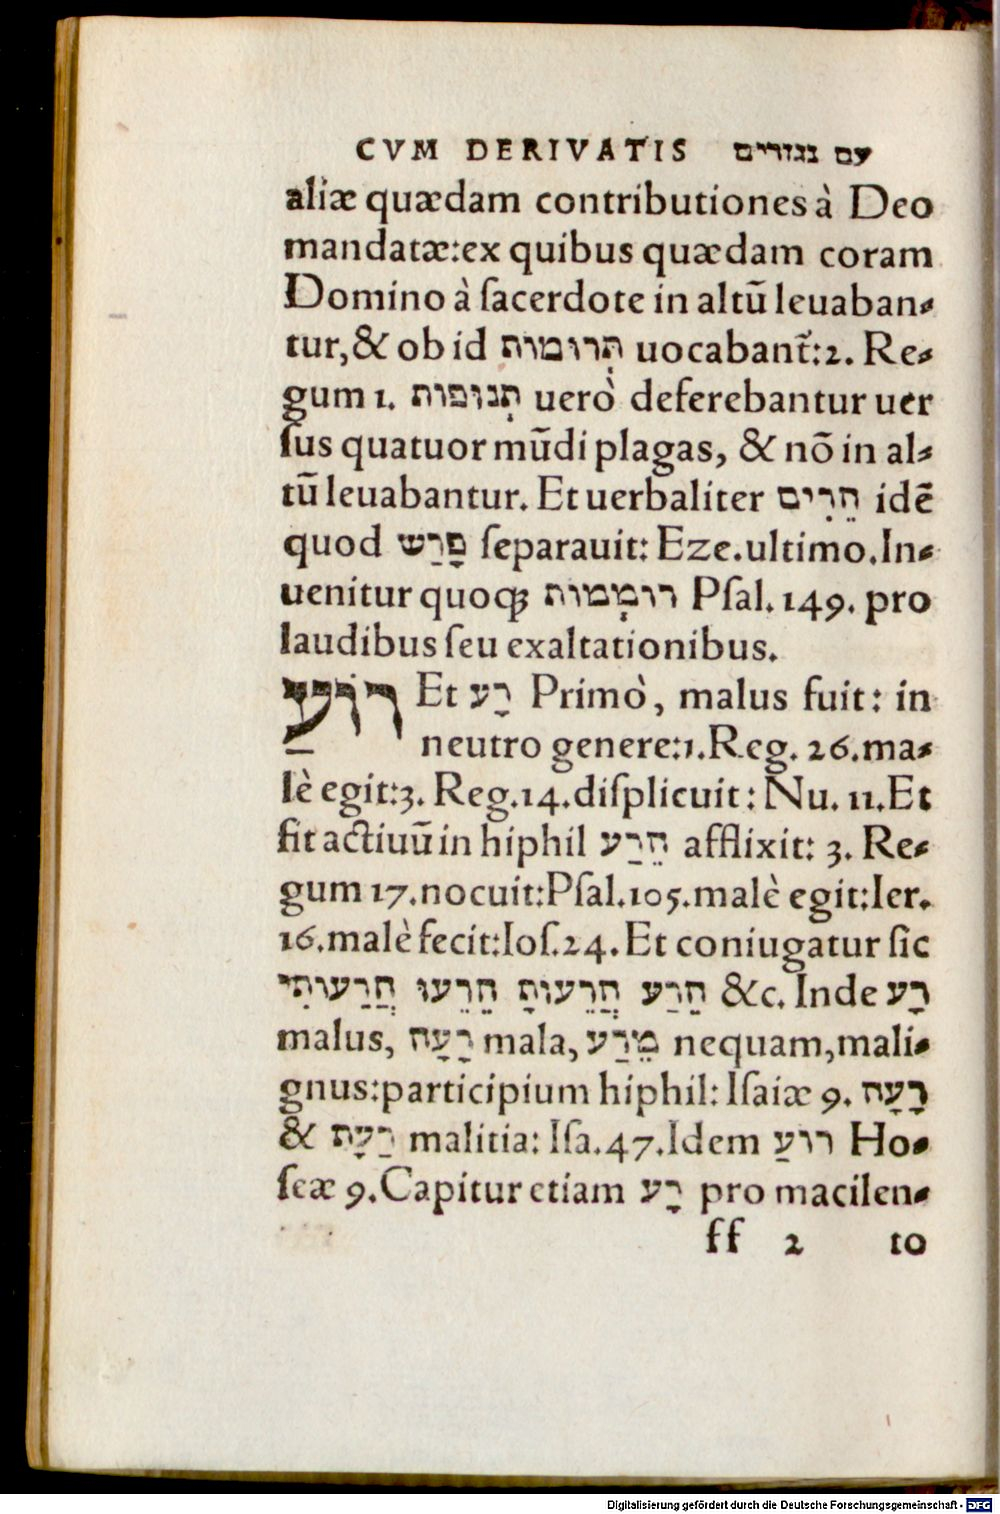 CVM DERIVATIS עם נגזרים
aliæ quædam contributiones à Deo
mandatæ:ex quibus quædam coram
Domino à ſacerdote in altũ leuaban-
tur,& ob id תְרומות uocabant̃:2. Re-
gum 1. תְנופות uerò deferebantur uer
ſus quatuor mũdi plagas, & nõ in al-
tũ leuabantur. Et uerbaliter הֵרִים idẽ
quod פָרַש ſeparauit: Eze.ultimo.In-
uenitur quoqꝫ רומְמות Pſal. 149. pro
laudibus ſeu exaltationibus.
רוֹעַ Et רָע Primò, malus fuit: in
neutro genere:1.Reg. 26.ma-
lè egit:3. Reg.14.diſplicuit: Nu. 11.Et
fit actiuũ in hiphil הֵרַע afflixit: 3. Re-
gum 17.nocuit:Pſal.105.malè egit:Ier.
16.malè fecit:Ioſ.24.Et coniugatur ſic
הֵרַע הֲרֵעוֹתָ הֵרֵעוּ הֲרַעוֹתִי &c. Inde רָע
malus, רָעָה mala, מֵרַע nequam,mali-
gnus:participium hiphil: Iſaiæ 9. רָעָה
& רַעָת malitia: Iſa.47.Idem רועַ Ho-
ſeæ 9.Capitur etiam רָע pro macilen-
ff 2 to
Digitalisierung gefördert durch die Deutsche Forschungsgemeinschaft - DFG